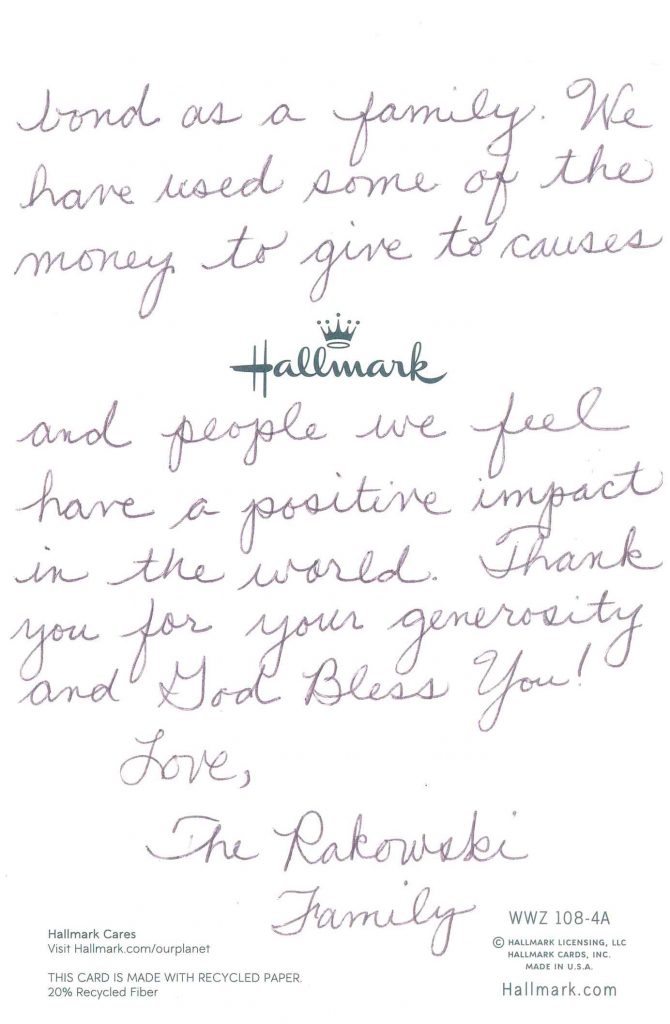 bond as a family. We
have used some of the
money to give to causes
Hallmark
and people we feel
have a positive impact
in the world. Thank
you for your generosity
and God Bless You!
Love,
The Rakowski
Family
Hallmark Cares
Visit Hallmark.com/ourplanet
THIS CARD IS MADE WITH RECYCLED PAPER.
20% Recycled Fiber
WWZ 108-4A
© HALLMARK LICENSING, LLC
HALLMARK CARDS, INC.
MADE IN U.S.A.
Hallmark.com